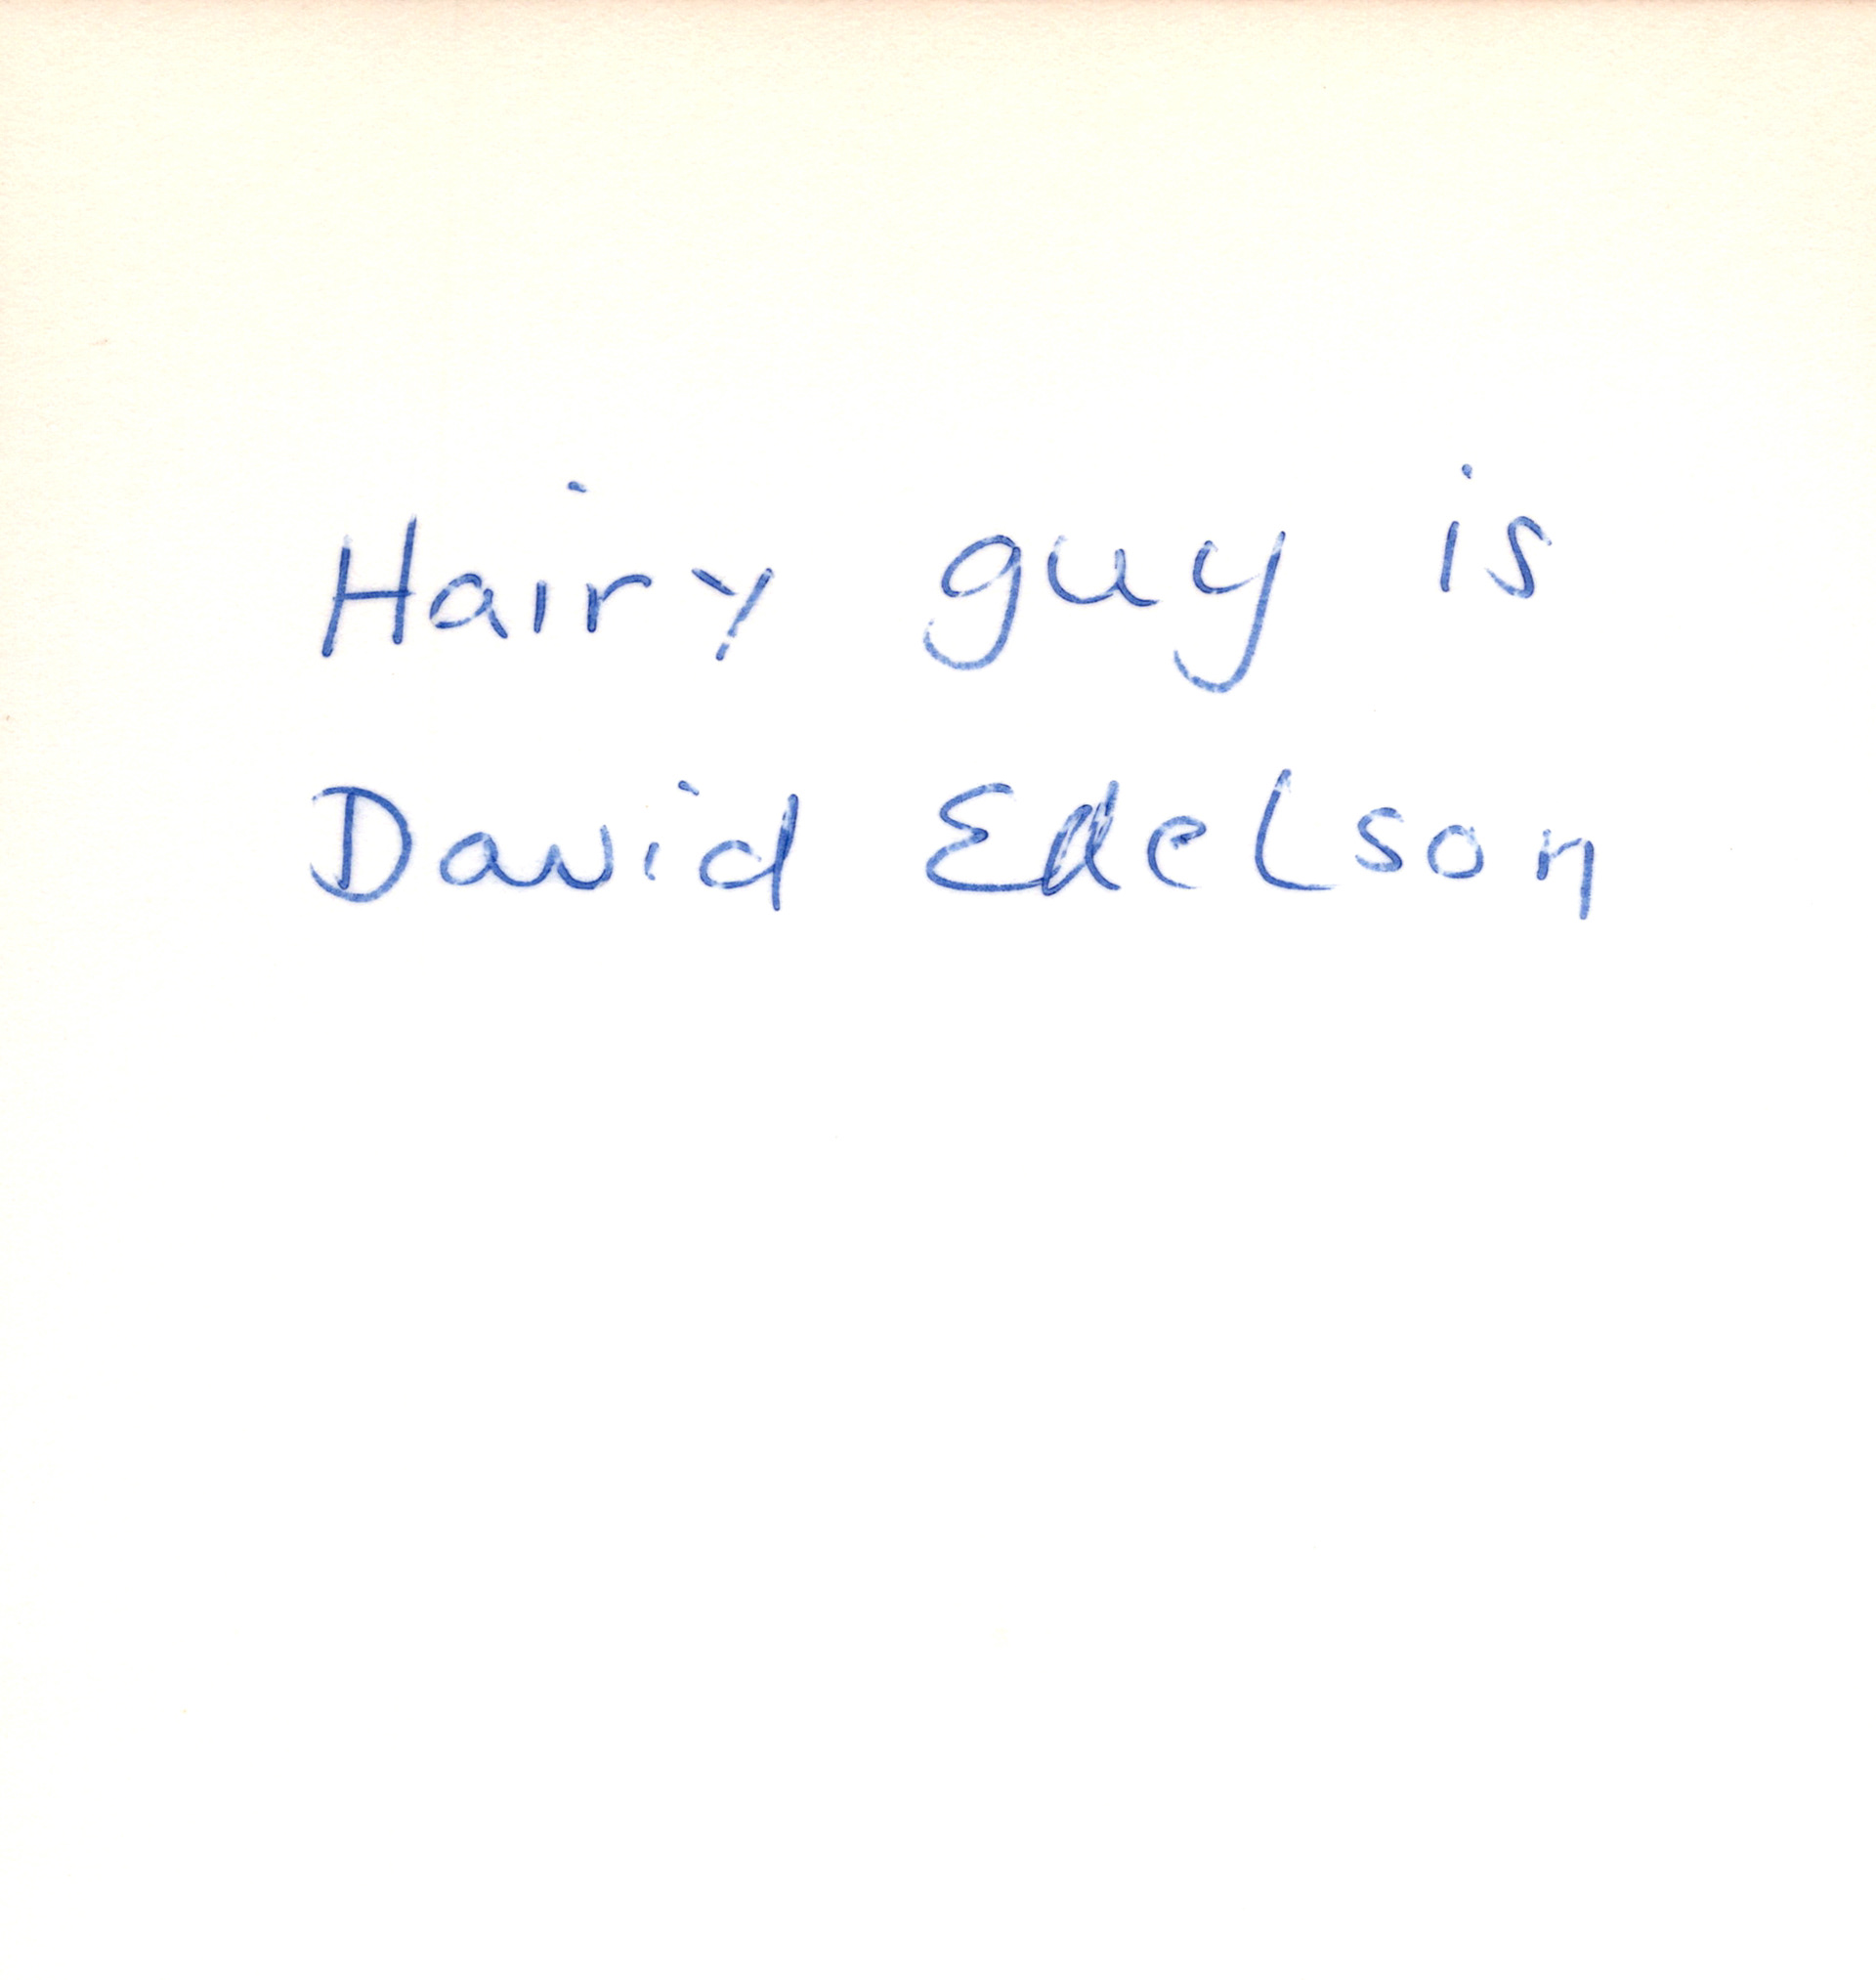 Hairy guy is
David Edelson